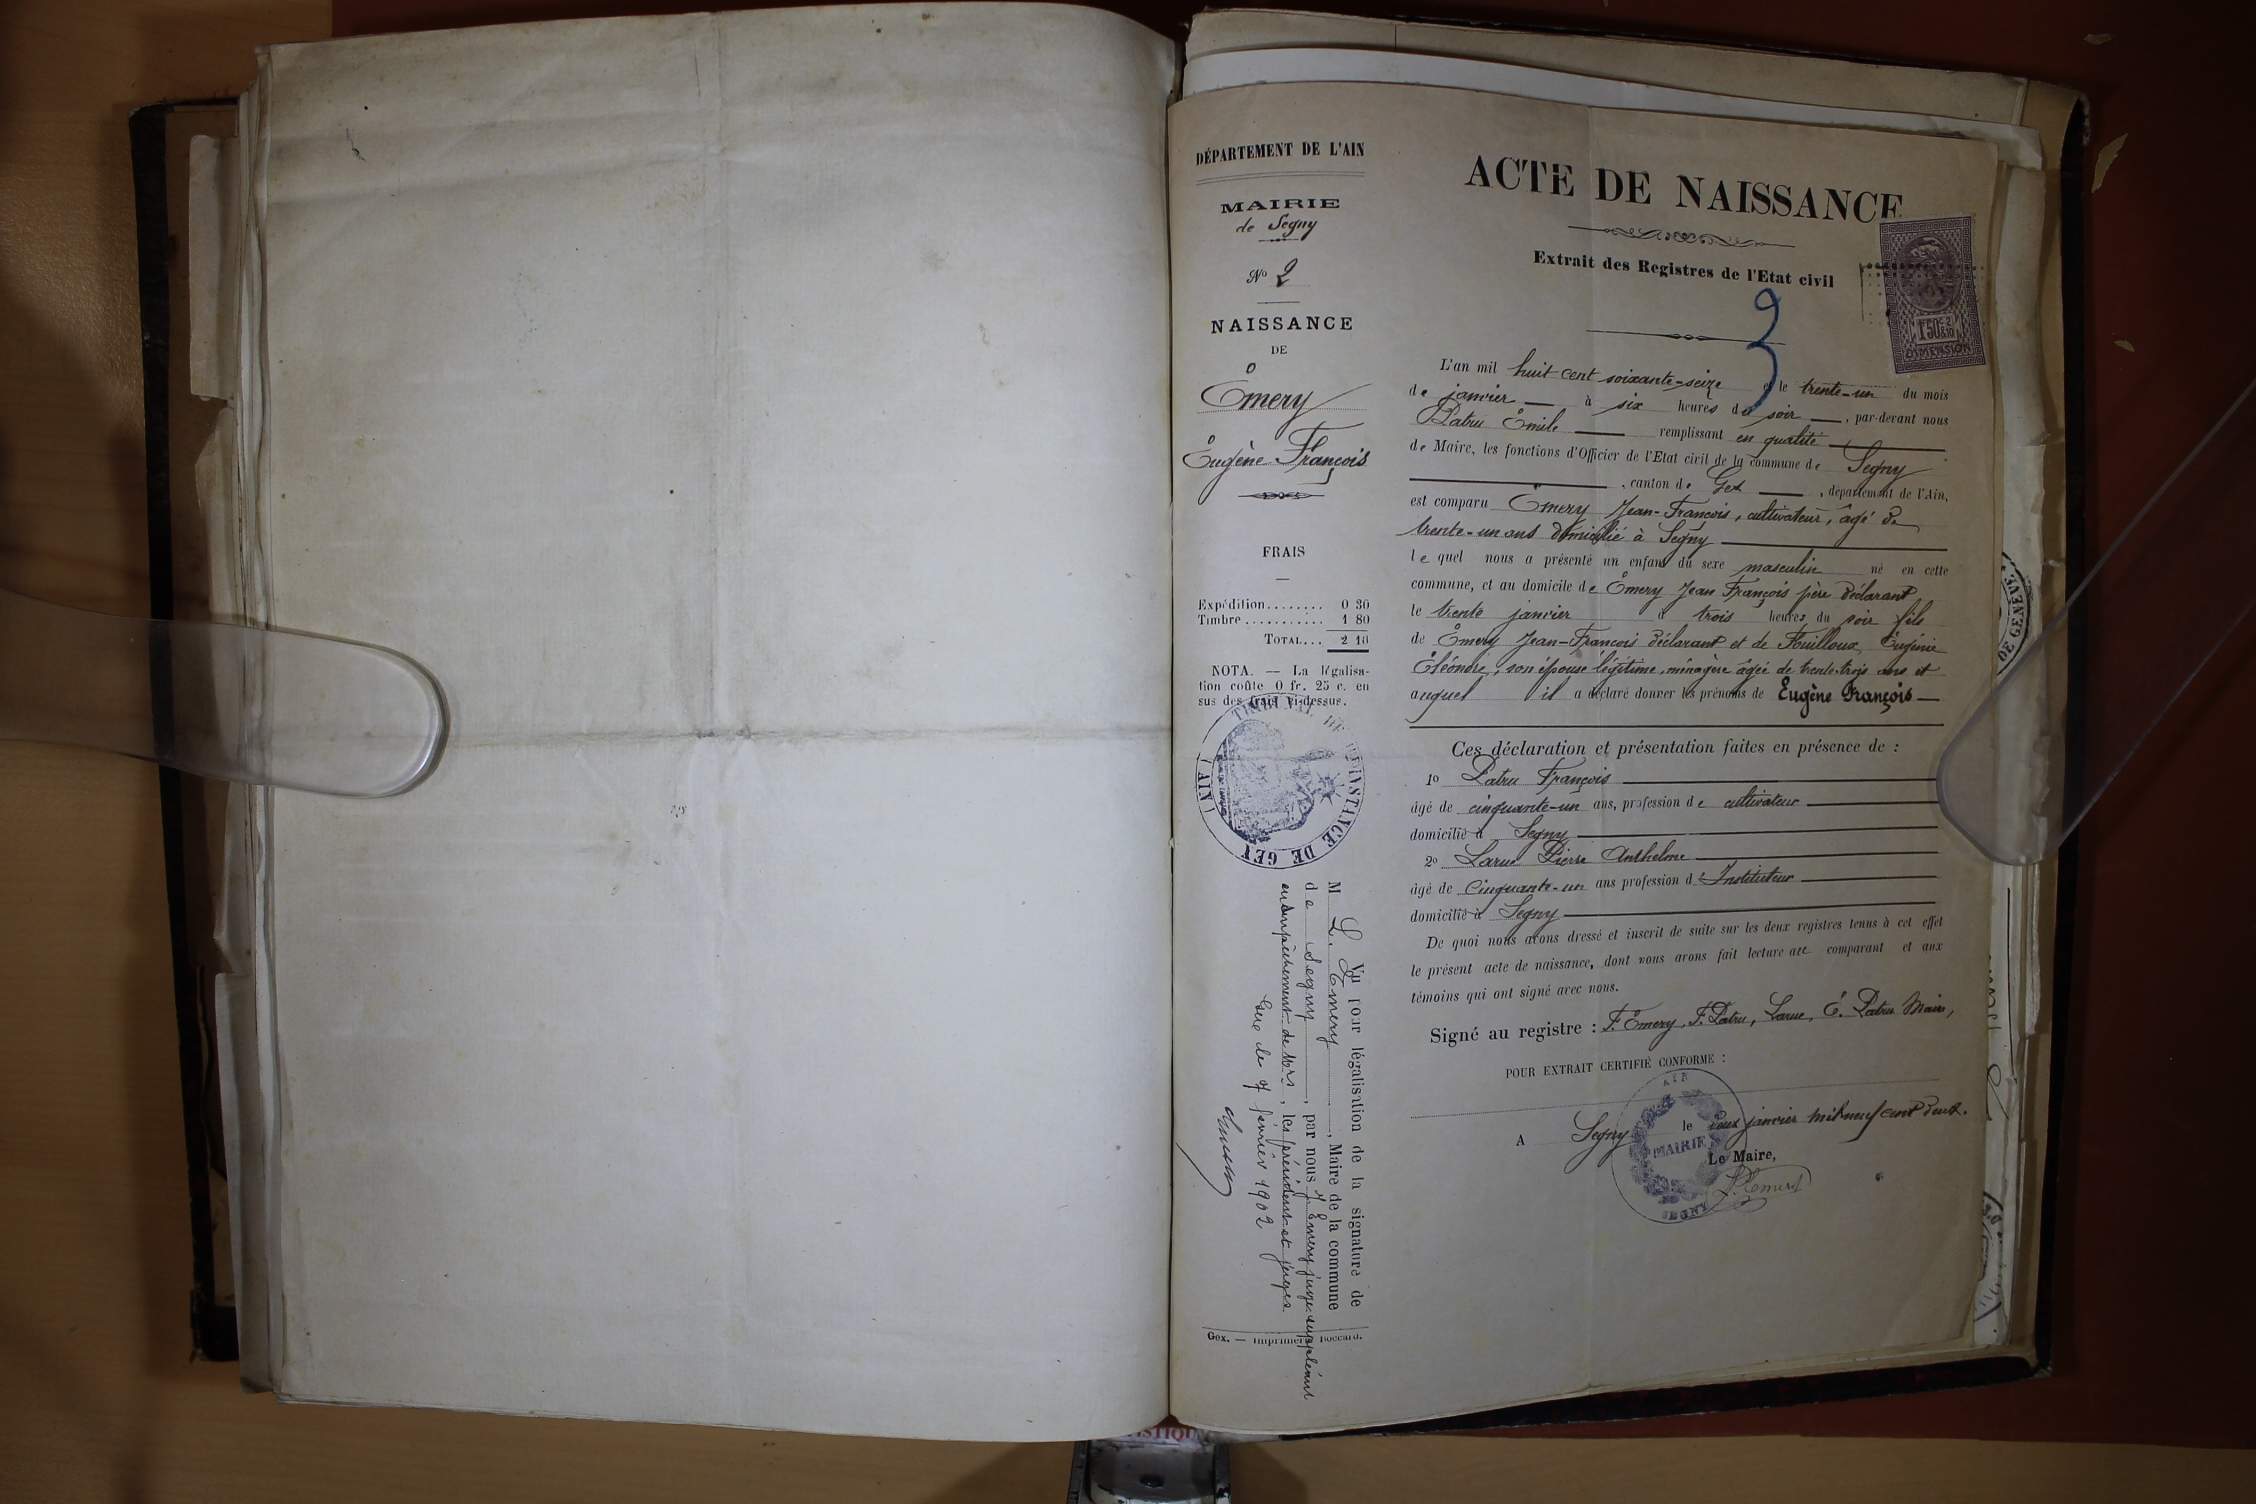 DÉPARTEMENT DE L'AIN
MAIRIE
de Segny
No 2
NAISSANCE
DE
Émery
Eugène François
FRAIS
Expédition........ 0 30
Timbre........... 1 80
TOTAL... 2 10
NOTA. — La légalisa-
tion coûte 0 fr. 25 c. en
sus des frais ci-dessus.
TRIBUNAL DE 1re INSTANCE DE GEX
(AIN)
Vu pour légalisation de la signature de
M L. Emery, Maire de la commune
de Segny, par nous J. Émery juge suppléant
en empêchement de Mrs, les président et juges.
Gex le 7 février 1902
Gex. — Imprimerie Boccard.
ACTE DE NAISSANCE
Extrait des Registres de l'Etat civil
1f50c 2/10
DIMENSION
L'an mil huit cent soixante-seize et le trente-un du mois
de janvier — à six heures du soir —, par-devant nous
Patru Émile — remplissant en qualité —
de Maire, les fonctions d'Officier de l'Etat civil de la commune de Segny
—, canton de Gex —, département de l'Ain,
est comparu Émery Jean-François, cultivateur, âgé de
trente-un ans domicilié à Segny —
lequel nous a présenté un enfant du sexe masculin né en cette
commune, et au domicile de Émery Jean François père déclarant
le trente janvier à trois heures du soir fils
de Émery Jean-François déclarant et de Fouilloux Eugénie
Éléonore, son épouse légitime, ménagère âgée de trente-trois ans et
auquel il a déclaré donner les prénoms de Eugène François —
Ces déclaration et présentation faites en présence de :
1o Patru François —
âgé de cinquante-un ans, profession de cultivateur —
domicilié à Segny —
2o Larue Pierre Anthelme —
âgé de cinquante-un ans profession d'Instituteur —
domicilié à Segny —
De quoi nous avons dressé et inscrit de suite sur les deux registres tenus à cet effet
le présent acte de naissance, dont nous avons fait lecture au comparant et aux
témoins qui ont signé avec nous.
Signé au registre : F. Émery, F. Patru, Larue, É. Patru Maire,
POUR EXTRAIT CERTIFIÉ CONFORME :
A Segny le deux janvier mil neuf cent deux.
Le Maire,
L. Emery
AIN
MAIRIE
SEGNY
DE GENÈVE